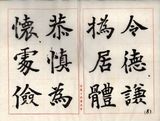 令德謙
撝居體
恭慎為
懷處儉
(8)